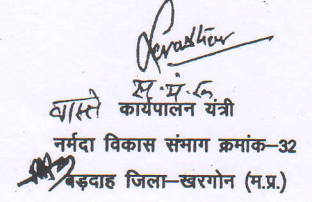 स. मं. स
वास्ते कार्यपालन यंत्री
नर्मदा विकास संभाग क्रमांक-32
बड़दाह जिला-खरगोन (म.प्र.)